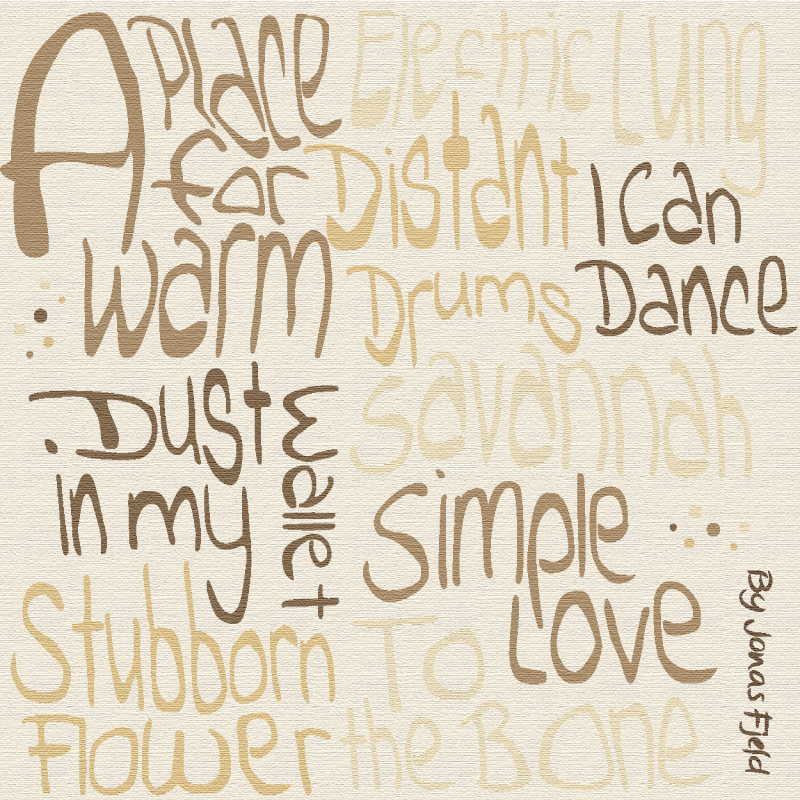 A place
for
warm
Electric Lung
Distant
Drums
I Can
Dance
Dust
in my
wallet
Savannah
Simple
Love
Stubborn
Flower
To
the Bone
By Jonas Fjeld